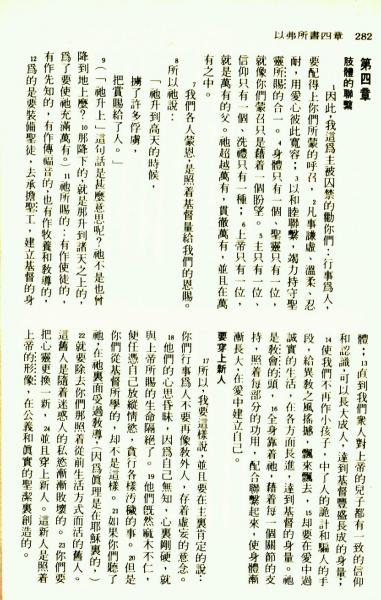 以弗所書四章 282
第四章
肢體的聯繫
1因此,我這爲主被囚禁的勸你們:行事爲人,
要配得上你們所蒙的呼召,2凡事謙虛、溫柔、忍
耐,用愛心彼此寬容;3以和睦聯繫,竭力持守聖
靈所賜的合一。4身體只有一個、聖靈只有一位、
就像你們蒙召只是藉着一個盼望。5主只有一位、
信仰只有一個、洗禮只有一種;6上帝只有一位、
就是萬有的父。祂超越萬有,貫徹萬有,並且在萬
有之中。
7我們各人蒙恩,是照着基督量給我們的恩賜。
8所以祂說:
「祂升到高天的時候,
擄了許多俘虜,
把賞賜給了人。」
9(「祂升上」這句話是甚麼意思呢?祂不是也曾
降到地上麼?10那降下的,就是那升到諸天之上的,
爲了要使祂充滿萬有。)11祂所賜的:有作使徒的,
有作先知的,有作傳福音的,也有作牧養和教導的,
12爲的是要裝備聖徒,去承擔聖工,建立基督的身
體;13直到我們衆人對上帝的兒子都有一致的信仰
和認識,可以長大成人,達到基督豐盛長成的身量;
14使我們不再作小孩子,中了人的詭計和騙人的手
段,給異教之風搖撼,飄來飄去,15却要在愛中過
誠實的生活,在各方面長進,達到基督的身量。祂
是教會的頭,16全身靠着祂,藉着每一個關節的支
持,照着每部分的功用,配合聯繫起來,使身體漸
漸長大,在愛中建立自己。
要穿上新人
17所以,我要這樣說,並且要在主裏肯定的說:
你們行事爲人不要再像敎外人,存着虛妄的意念。
18他們的心思昏昧,因爲自己無知,心裏剛硬,就
與上帝所賜的生命隔絶了。19他們旣然麻木不仁,
便任憑自己放縱情慾,貪行各樣污穢的事。20但是
你們從基督所學的,却不是這樣。21如果你們聽了
祂,在祂裏面受過敎導,(因爲眞理是在耶穌裏的,)
22就要除去你們那照着從前生活方式而活的舊人。
這舊人是隨着迷惑人的私慾漸漸敗壞的。23你們要
把心靈更換一新,24並且穿上新人。這新人是照着
上帝的形像,在公義和眞實的聖潔裏創造的。